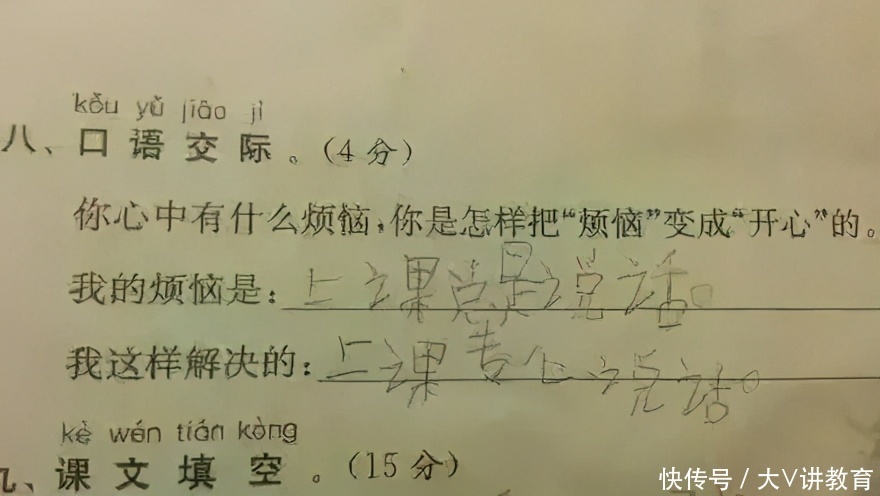 kǒu yǔ jiāo jì
八、口语交际。(4分)
你心中有什么烦恼,你是怎样把“烦恼”变成“开心”的。
我的烦恼是:上课总是说话。
我这样解决的:上课专心说话。
kè wén tián kòng
九、课文填空。(15分)
快传号/大V讲教育